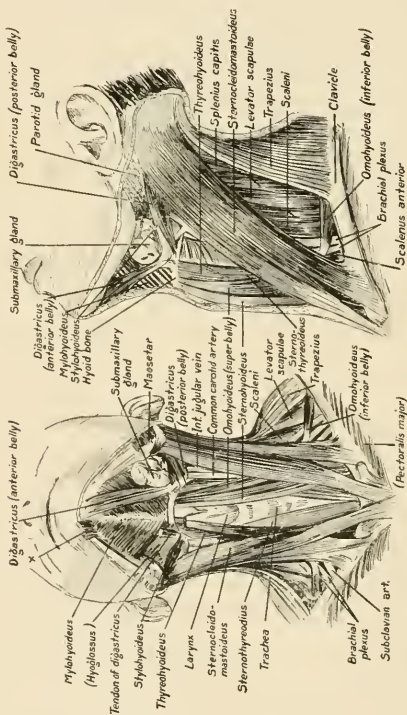 Digastricus (anterior belly)
x
Mylohyoideus
(Hyoglossus)
Tendon of digastricus
Stylohyoideus
Thyreohyoideus
Larynx
Sternocleido-
mastoideus
Sternothyreodius
Trachea
Brachial
plexus
Subclavian art.
Submaxillary
gland
Maesetar
Digastricus
(posterior belly)
Int. jugular vein
Common carotid artery
Omohyoideus (super belly)
Sternohyoideus
Scaleni
Levator
scapulae
Sterno-
thyreoideus
Trapezius
Omohyoideus
(inferior belly)
(Pectoralis major)
Digastricus (posterior belly)
Parotid gland
Submaxillary gland
Digastricus
(anterior belly)
Mylohyoideus
Stylohyoideus
Hyoid bone
Thyreohyoideus
Splenius capitis
Sternocleidomastoideus
Levator scapulae
Trapezius
Scaleni
Clavicle
Omohyoideus (inferior belly)
Brachial plexus
Scalenus anterior